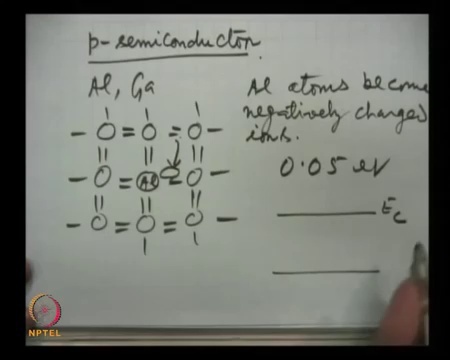 p-semiconductor
Al, Ga
Al atoms become
negatively charged
ions.
Al
0.05 eV
Ec
NPTEL